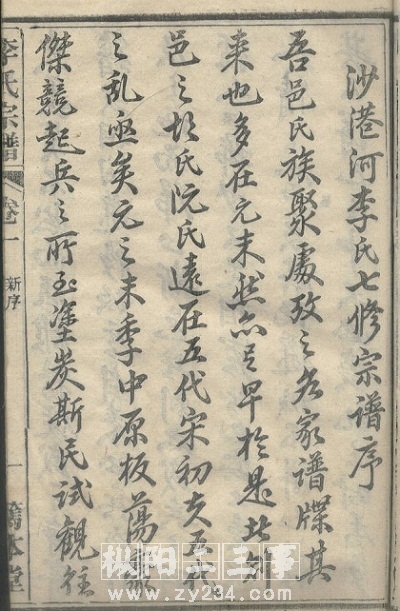 沙港河李氏七修宗谱序
吾邑氏族聚處攷之各家譜牒其
来也多在元末然亦有早於是
邑之胡氏阮氏遠在五代宋初夫五代
之乱亟矣元之末季中原板蕩豪
傑競起兵之所至塗炭斯民試觀往
李氏宗譜
卷一
新序
一
本堂
枞阳二三事
www.zy234.com